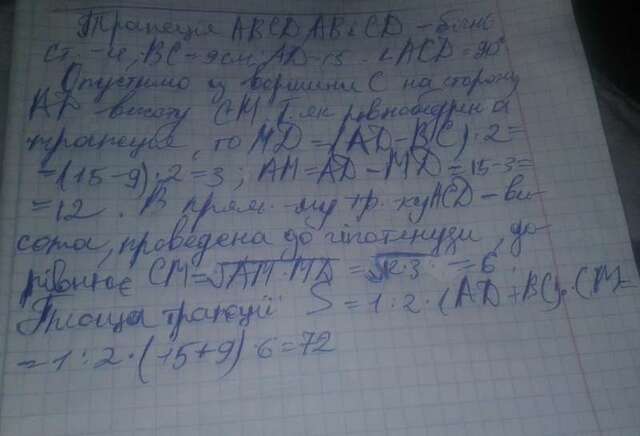 Трапеція ABCD AB і CD - бічні
ст. - ни, BC = 9см. AD - 15. ∠ACD = 90°
Опустимо із вершини С на сторону
AD висоту CM. Т.як рівнобедрена
трапеція, то MD = (AD - BC) : 2 =
= (15 - 9) : 2 = 3 ; AM = AD - MD = 15 - 3 =
= 12 . В прям. - му тр. - ку ACD - ви-
сота, проведена до гіпотенузи, до-
рівнює CM = √AM · MD = √12 · 3 = 6
Площа трапеції S = 1 : 2 · (AD + BC) · CM =
= 1 : 2 · (15 + 9) · 6 = 72